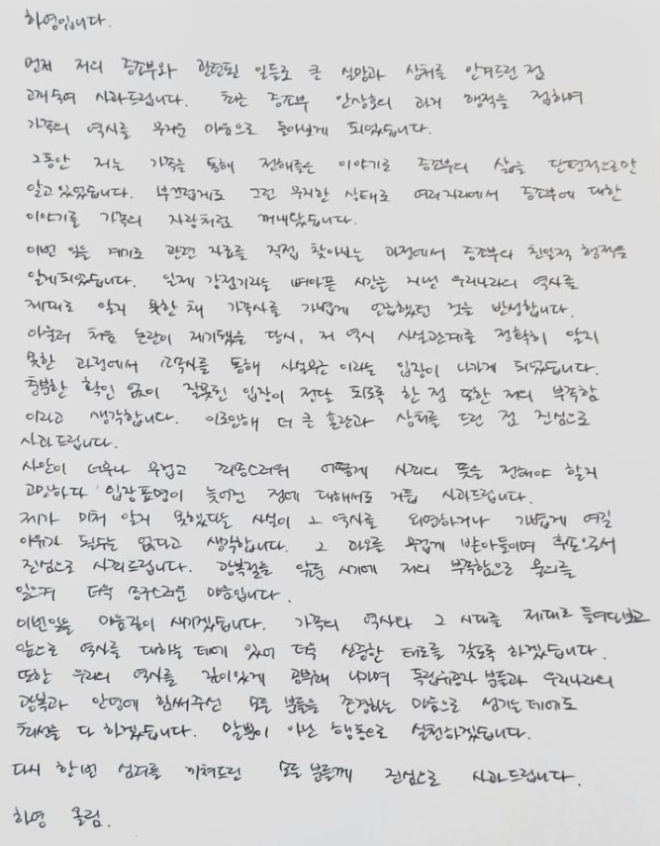 하영입니다.
먼저 저의 증조부와 관련된 일들로 큰 실망과 상처를 안겨드린 점
고개 숙여 사과드립니다. 최근 증조부 안상호의 과거 행적을 접하며
가족의 역사를 무거운 마음으로 돌아보게 되었습니다.
그동안 저는 가족을 통해 전해들은 이야기로 증조부의 삶을 단편적으로만
알고 있었습니다. 부끄럽게도 그런 무지한 상태로 여러 자리에서 증조부에 대한
이야기를 가족의 자랑처럼 꺼내왔습니다.
이번 일을 계기로 관련 자료를 직접 찾아보는 과정에서 증조부의 친일적 행적을
알게되었습니다. 일제 강점기라는 뼈아픈 시간을 지닌 우리나라의 역사를
제대로 알지 못한 채 가족사를 가볍게 언급했던 것을 반성합니다.
아울러 처음 논란이 제기됐을 당시, 저 역시 사실관계를 정확히 알지
못한 과정에서 소속사를 통해 사실무근 이라는 입장이 나가게 되었습니다.
충분한 확인 없이 잘못된 입장이 전달 되도록 한 점 또한 저의 부족함
이라고 생각합니다. 이로인해 더 큰 혼란과 상처를 드린 점 진심으로
사과드립니다.
사안이 너무나 무겁고 죄송스러워 어떻게 사죄의 뜻을 전해야 할지
고민하다 입장표명이 늦어진 점에 대해서도 거듭 사과드립니다.
제가 미처 알지 못했다는 사실이 그 역사를 외면하거나 가볍게 여길
이유가 될수는 없다고 생각합니다. 그 과오를 무겁게 받아들이며 후손으로서
진심으로 사죄드립니다. 광복절을 앞둔 시기에 저의 부족함으로 물의를
일으켜 더욱 송구스러운 마음입니다.
이번일을 마음깊이 새기겠습니다. 가족의 역사와 그 시대를 제대로 들여다보고
앞으로 역사를 대하는 데에 있어 더욱 신중한 태도를 갖도록 하겠습니다.
또한 우리의 역사를 깊이있게 공부해 나가며 독립유공자 분들과 우리나라의
광복과 안녕에 힘써주신 모든 분들을 존경하는 마음으로 섬기는 데에도
최선을 다 하겠습니다. 말뿐이 아닌 행동으로 실천하겠습니다.
다시 한번 심려를 끼쳐드린 모든 분들께 진심으로 사과드립니다.
하영 올림.